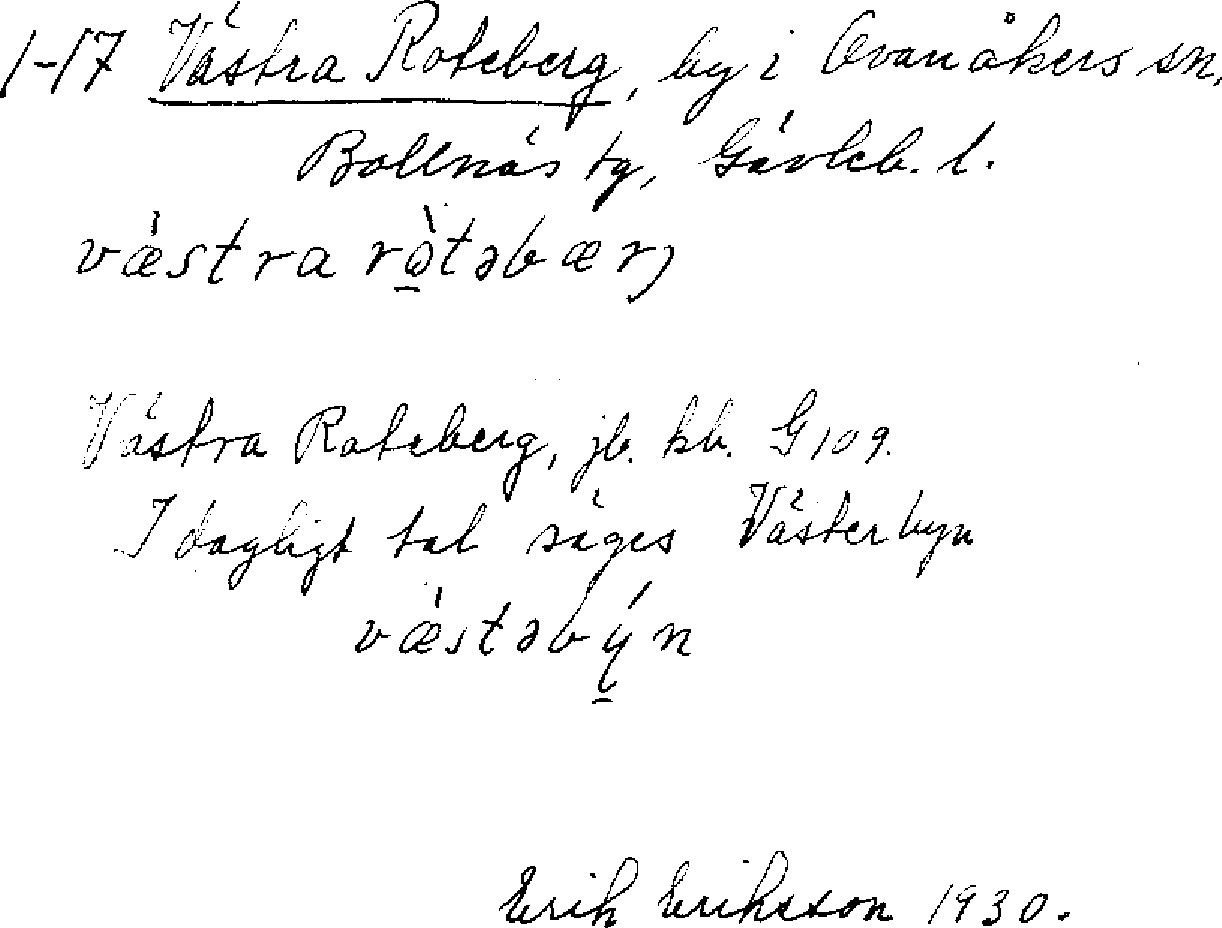 1-17 Västra Roteberg, by i Ovanåkers sn,
Bollnäs tg, Gävleb. l.
væ̀stra rò̱təbærj
Västra Roteberg, jb. kb. G 109.
I dagligt tal säges Västerbyn
væ̀stəbý̱n
Erik Eriksson 1930.